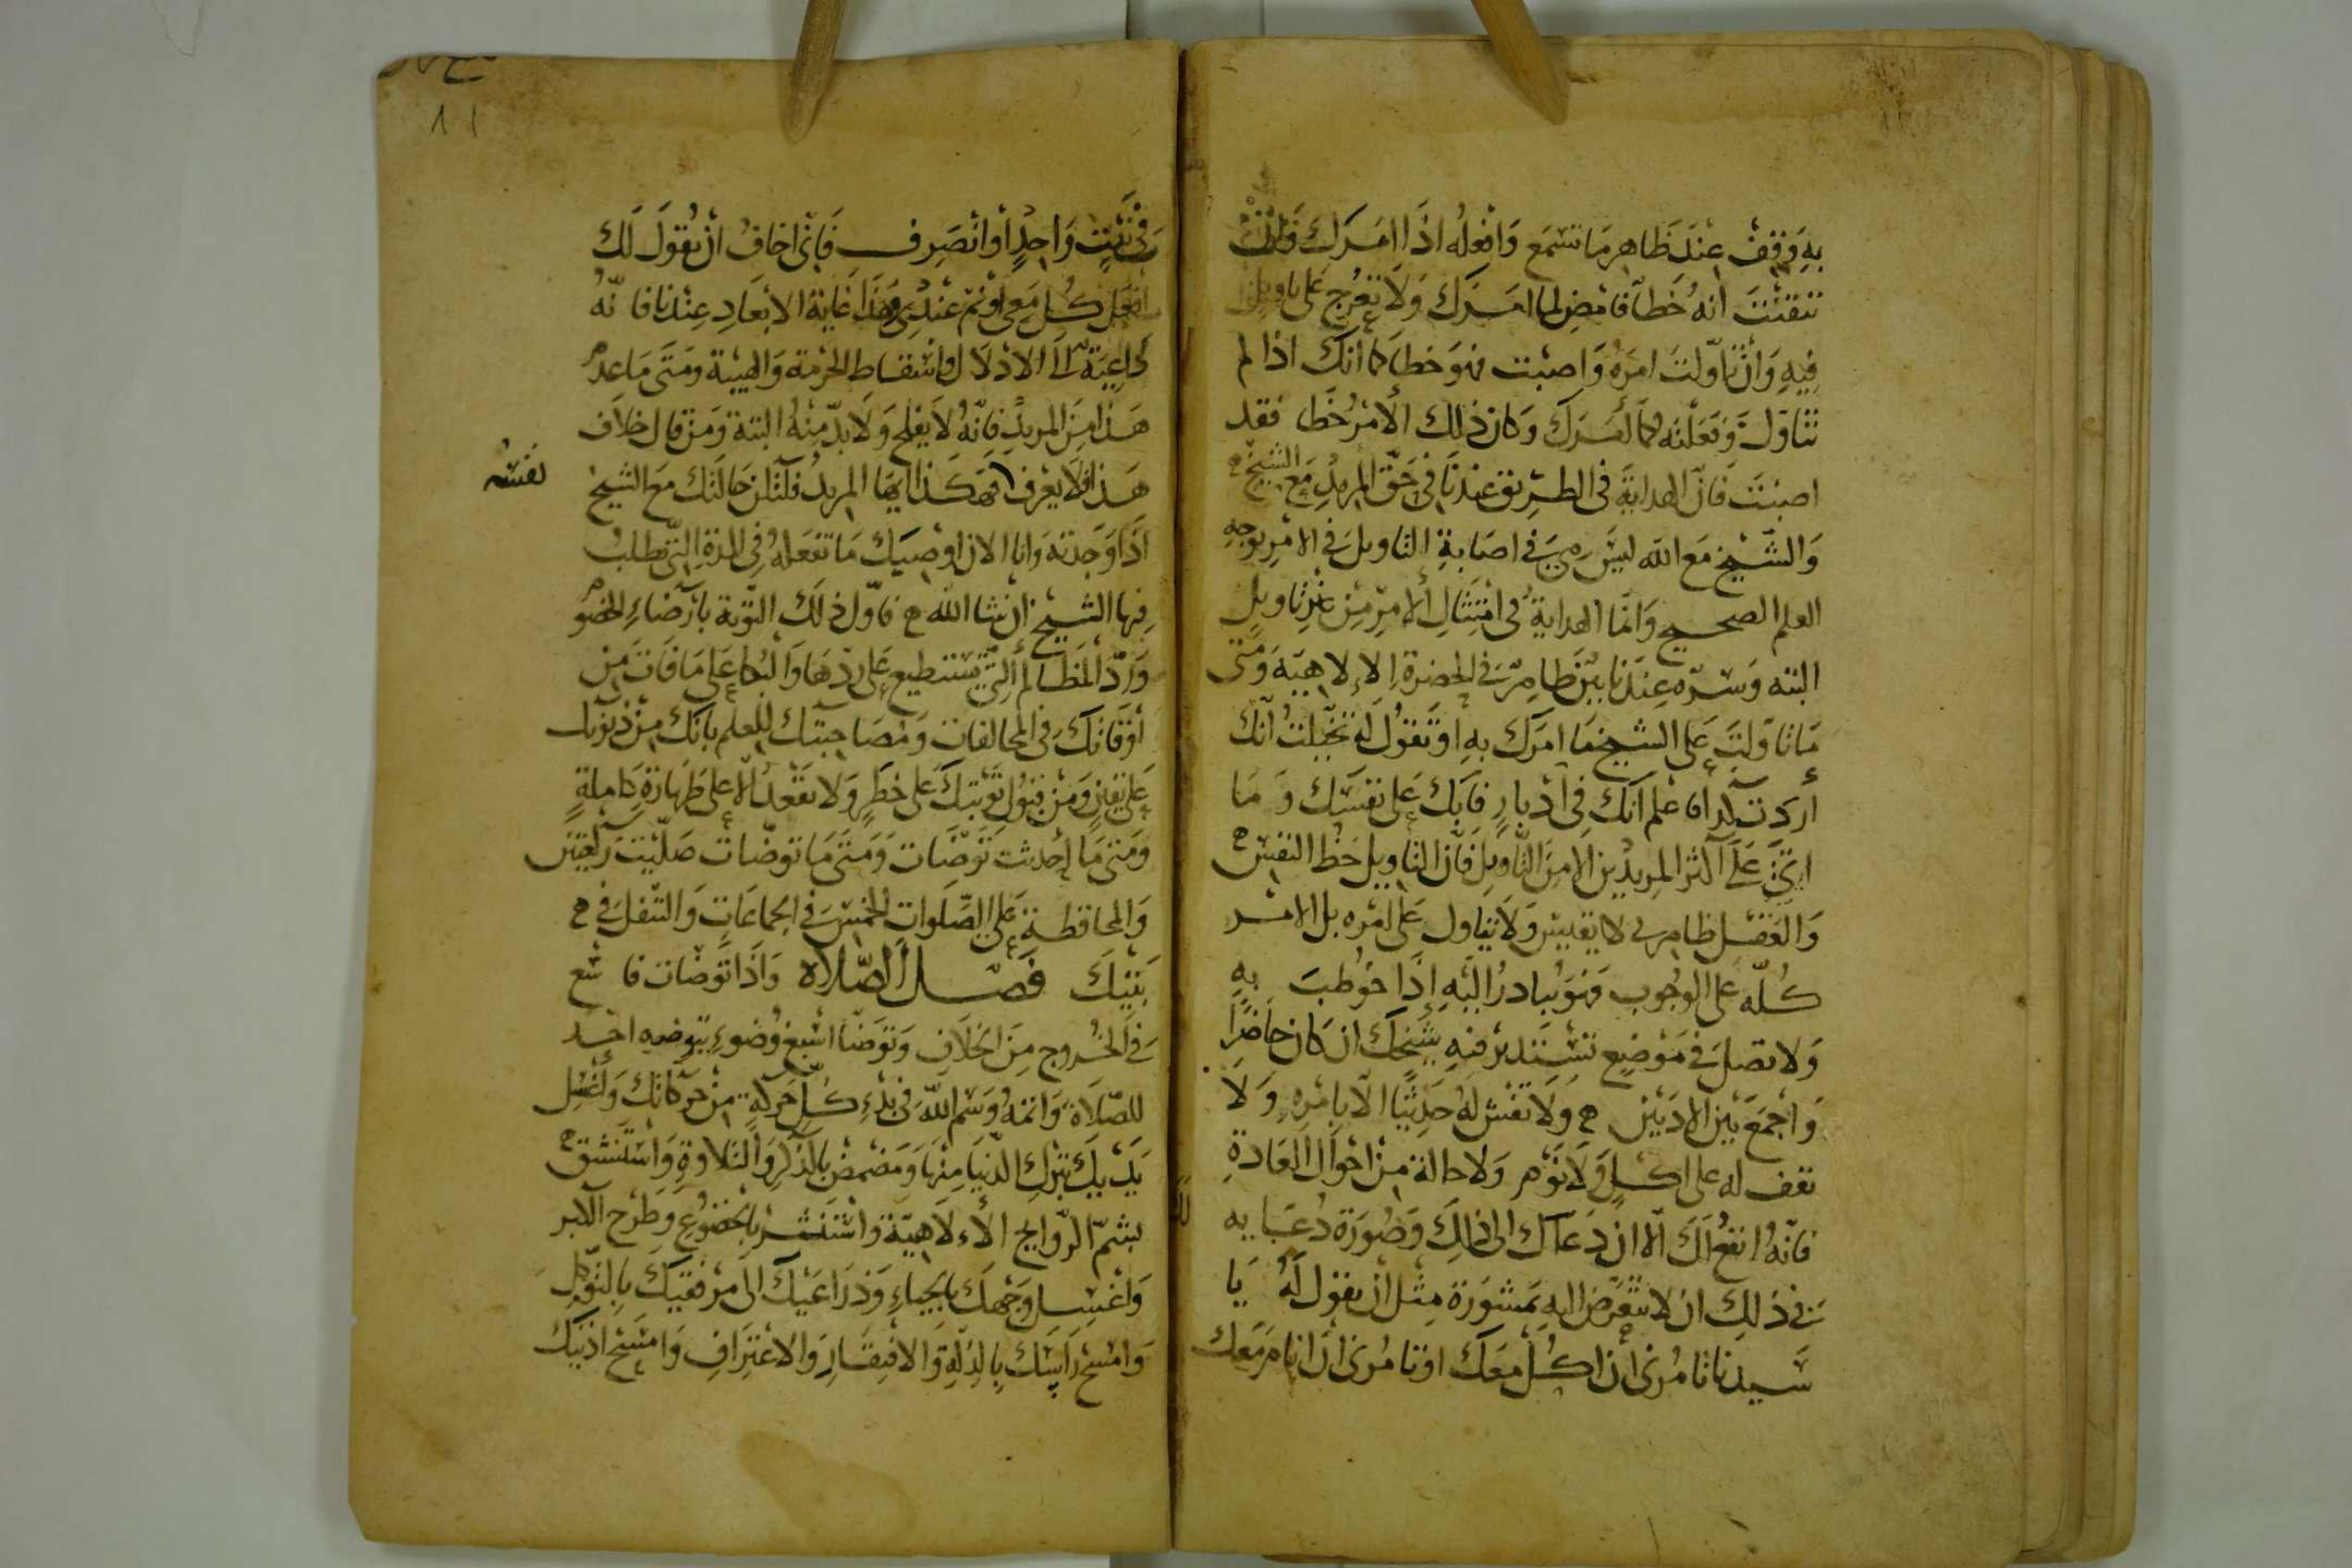 به وقف عند ظاهر ما تسمع وافعله اذا امرك فان
تيقنت انه خطأ فامض لما امرك ولا تعرج على تاويل
فيه وان تاولت امره واصبت فهو خطا كما انك اذا لم
تتاول وفعلته كما امرك وكان ذلك الأمر خطا فقد
اصبت فان الهداية فى الطريق عندنا فى حق المريد مع الشيخ
والشيخ مع الله ليس هى فى اصابة التاويل فى الامر بوجه
العلم الصحيح وانما الهداية فى امتثال الأمر من غير تاويل
البته وسره عندنا بين ظاهر فى الحضرة الالاهية ومتى
ما تاولت على الشيخ ما امرك به او تقول له تخيلت انك
أردت كذا فاعلم انك فى ادبار فابك على نفسك وما
اتى على اكثر المريدين الا من التاويل فان التاويل حظ النفس
والعقل ظاهرى لا يقيس ولا يتاول على امره بل الامر
كله على الوجوب فهو يبادر اليه إذا خوطب به
ولا تصل فى موضع تستدبر فيه شيخك ان كان حاضرا
واجمع بين الادبين ولا تفش له حديثا الا بامره ولا
تقف له على اكل ولا نوم ولا حالة من احوال العادة
فانه انفع لك الا ان دعاك الى ذلك وصورة دعايه
فى ذلك ان لا تتعرض اليه بمشورة مثل ان تقول له يا
سيدنا تامرنى ان اكل معك او تامرنى ان انام معك
فى بيت واحد أو انصرف فانى اخاف ان يقول لك
افعل كل معى او نم عندى وهذا غاية الابعاد عندنا فانه
داعية الى الادلال واسقاط الحرمة والهيبة ومتى ما عدم
هذا من المريد فانه لا يفلح ولا بد منه البتة ومن قال خلاف
هذا فلا يعرف نفسه فهكذا ايها المريد فلتكن حالتك مع الشيخ
اذا وجدته وانا الان اوصيك ما تفعله فى المدة التى تطلب
فيها الشيخ ان شا الله فاول ذلك التوبة بارضاء الخصوم
ورد المظالم التى تستطيع على ردها والبكا على ما فات من
أوقاتك فى المخالفات ومصاحبتك للعلم بانك من ذنوبك
على يقين ومن قبول توبتك على خطر ولا تقعد الا على طهارة كاملة
ومتى ما احدثت توضات ومتى ما توضات صليت ركعتين
والمحافظة على الصلوات الخمس فى الجماعات والتنفل فى
بيتك فصل الصلاه واذا توضات فاسع
فى الخروج من الخلاف وتوضا اسبغ وضوء يتوضوه احد
للصلاة واتمه وسم الله فى بدء كل حركة من حركاتك واغسل
يديك بترك الدنيا منها ومضمض بالذكر والتلاوة واستنشق
بشم الروايح الالاهية واستنثر بالخضوع وطرح الكبر
واغسل وجهك بالحياء وذراعيك الى مرفقيك بالتوكل
وامسح راسك بالذلة والافتقار والاعتراف وامسح اذنيك